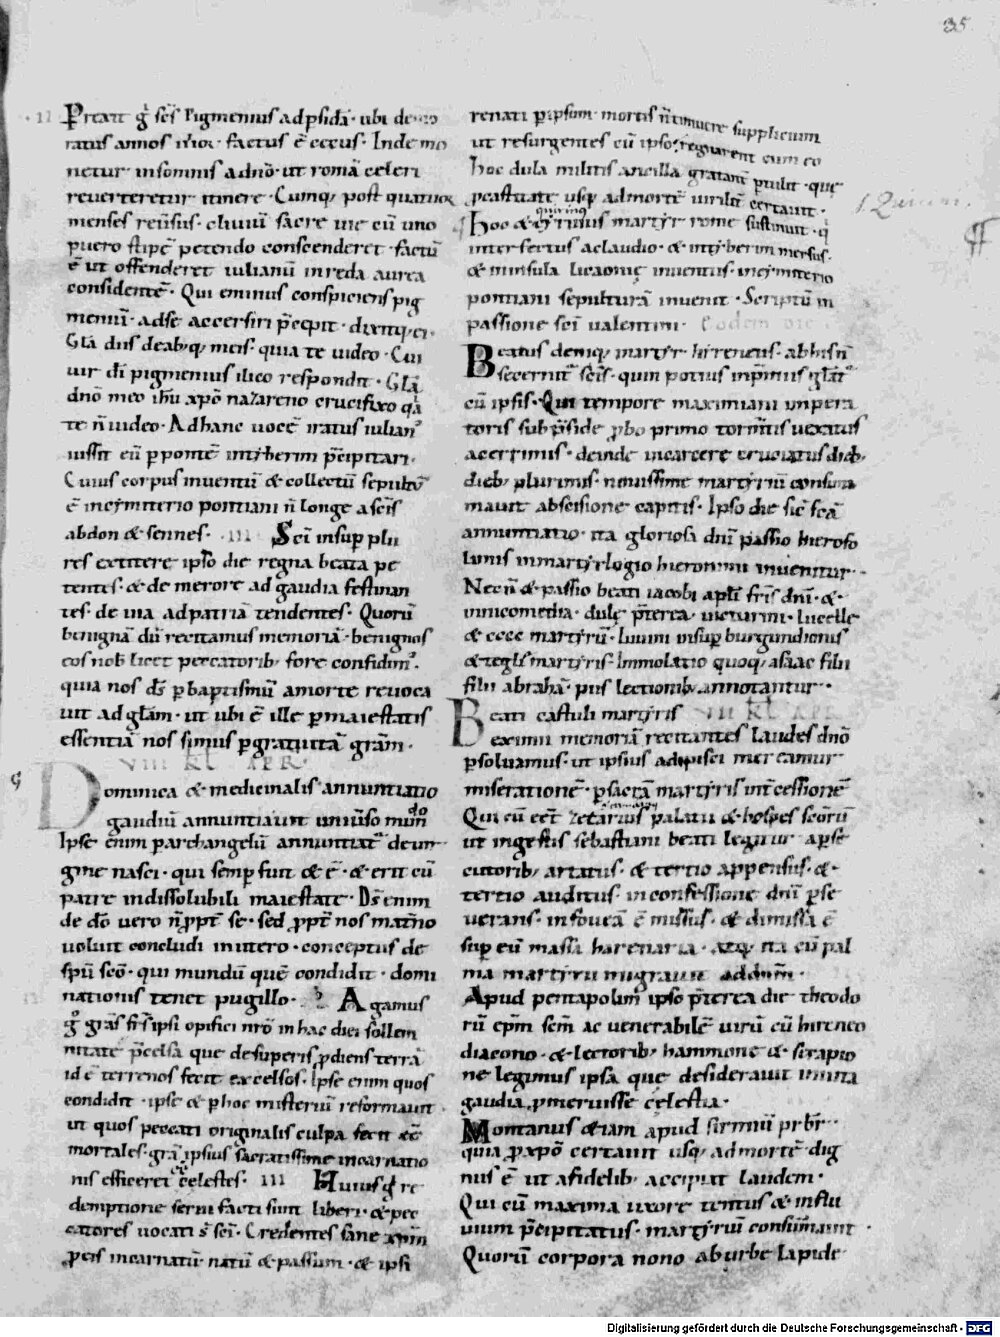 35
P̄rtaū g̊ sc̄s Pigmenius ad p̄sidā· ubi de
ratus annos iiiior· factus ē cecus· Inde mo
netur in somnis a dn̄o· ut romā celeri
reuerteretur itinere· Cumq; post quatuor
menses reūsus· cliuum̄ sacre uie cū uno
puero stipē petendo conscenderet· factū
ē ut offenderet iulianū in reda aurea
considentē· Qui eminus conspiciens pig
meniū· ad se accersiri p̄cepit· dixitq; ei·
Gl̄a diis deabq; meis· quia te uideo· Cui
uir dī pigmenius ilico respondit· Gl̄a
dn̄o meo ih̄u xp̄o nazareno crucifixo q̄a
te n̄ uideo· Ad hanc uocē iratus iulian⁹
iussit eū p pontē in tyberim p̄cipitari·
Cuius corpus inuentū & collectū sepultū
ē in cymiterio pontiani n̄ longe a sc̄is
abdon & sennes· III Sc̄i insup plu
res extitere ipso die regna beata pe
tentes· & de merore ad gaudia festinan
tes· de uia ad patriā tendentes· Quorū
benignā dū recitamus memoriā· benignos
eos nob̄ licet peccatorib; fore confidim⁹·
quia nos d̄s p baptismū a morte reuoca
uit ad gl̄am· ut ubi ē ille p maiestatis
essentiā nos simus p gratuitā gr̄am·
VIII KL APR·
Dominica & medicinalis annuntiatio
gaudiū annuntiauit uniūso mundo
Ipse enim p archangelū annuntiat̄ de uir
gine nasci· qui semp fuit & ē· & erit cū
patre indissolubili maiestate· D̄s enim
de dō uero n̄ ppt̄ se· sed ppt̄ nos mat̄no
uoluit concludi in utero· conceptus de
sp̄u sc̄o· qui mundū quē condidit· domi
nationis tenet pugillo· Agamus
g̊ gr̄as fr̄s ipsi opifici nr̄o in hac diei sollem
nitate p̄celsa que de superis pdiens terrā
id ē terrenos fecit excelsos· Ipse enim quos
condidit· ipse & p hoc misteriū reformauit·
ut quos peccati originalis culpa fecit ēē
mortales· gr̄a ipsius sacratissime incarnatio
nis efficeret celestes· III Huius g̊ re
demptione serui facti sunt liberi· & pec
catores uocati s̄ sc̄i· Credentes sane xp̄m
p eis incarnatū· natū & passum· & ipsi
renati p ipsum· mortis n̄ timuere supplicium
ut resurgentes cū ipso· regnarent cum eo
Hoc dula militis ancilla gratant̄ ptulit· que
p castitate usq; ad mortē uirilit̄ certauit·
quirinus
Hoc & tyrinus martyr rome sustinuit· q̊
1 Quirini.
interfectus a claudio· & in tyberim mersus·
& in insula licaonię inuentus· in cymiterio
pontiani sepulturā inuenit· Scriptū in
passione sc̄i ualentini· Eodem die
Beatus deniq; martyr hireneus· ab his n̄
secernit̄ sc̄is· quin potius inp̄mus glāt̄
cū ipsis· Qui tempore maximiani impera
toris sub p̄side probo primo torm̄tis uexatus
acerrimis· deinde in carcere cruciatus dieb;
dieb; plurimis· nouissime martyriū consum
mauit abscisione capitis· Ipso die sic̄ sc̄a
annuntiatio· ita gloriosa dn̄i passio hieroso
limis in martyrlogio hieronimi inuenitur·
Necn̄ & passio beati iacobi apl̄i fr̄is dn̄i· &·
in nicomedia· dulę p̄terea· uicturini· lucelle
& cccc martyrū· Inum insup burgundionus
& teglis martyris· Immolatio quoq; isaac filii
filii abrahā· piis lectionib; annotantur·
VII KL APR
Beati castuli martyris
eximii memoriā recitantes laudes dn̄o
psoluamus· ut ipsius adipisci mereamur
miserationē· p sacrā martyris int̄cessionē
Qui cū eēt zetarius palatii & hospes sc̄orū
ut in gestis sebastiani beati legitur· a pse
cutorib; artatus· & tertio appensus· &·
tertio auditus· in confessione dn̄i pse
uerans· in foueā ē missus· & dimissa ē
sup eū massa harenaria· atq; ita cū pal
ma martyrii migrauit ad dn̄m·
Apud pentapolim ipso p̄terea die theodo
rū ep̄m sc̄m ac uenerabilē uirū cū hireneo
diacono· & lectorib; hammone & serapio
ne legimus ipsa que desiderauit inuita
gaudia pmeruisse celestia·
Montanus etiam apud sirmiū prb̄r·
quia p xp̄o certauit usq; ad mortē dig
nus ē ut a fidelib; accipiat laudem·
Qui cū maxima uxore tentus & in flu
uium p̄cipitatus· martyriū consūmauit·
Quorū corpora nono ab urbe lapide
Digitalisierung gefördert durch die Deutsche Forschungsgemeinschaft - DFG